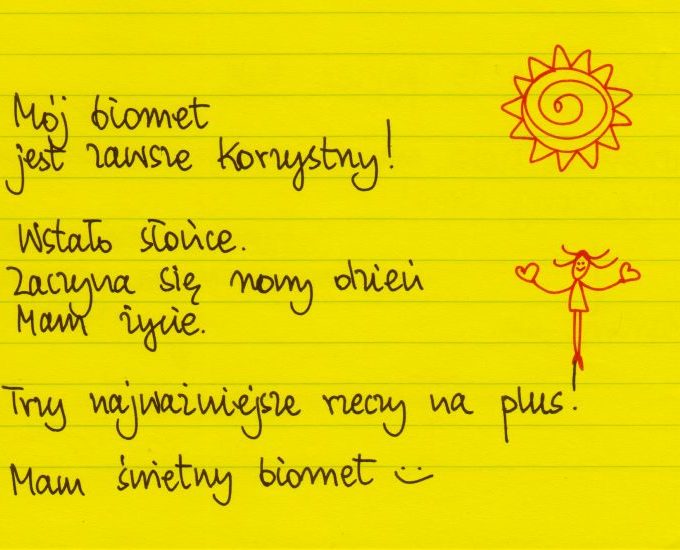 Mój biomet
jest zawsze korzystny!
Wstało słońce.
Zaczyna się nowy dzień
Mam życie.
Trzy najważniejsze rzeczy na plus!
Mam świetny biomet :)